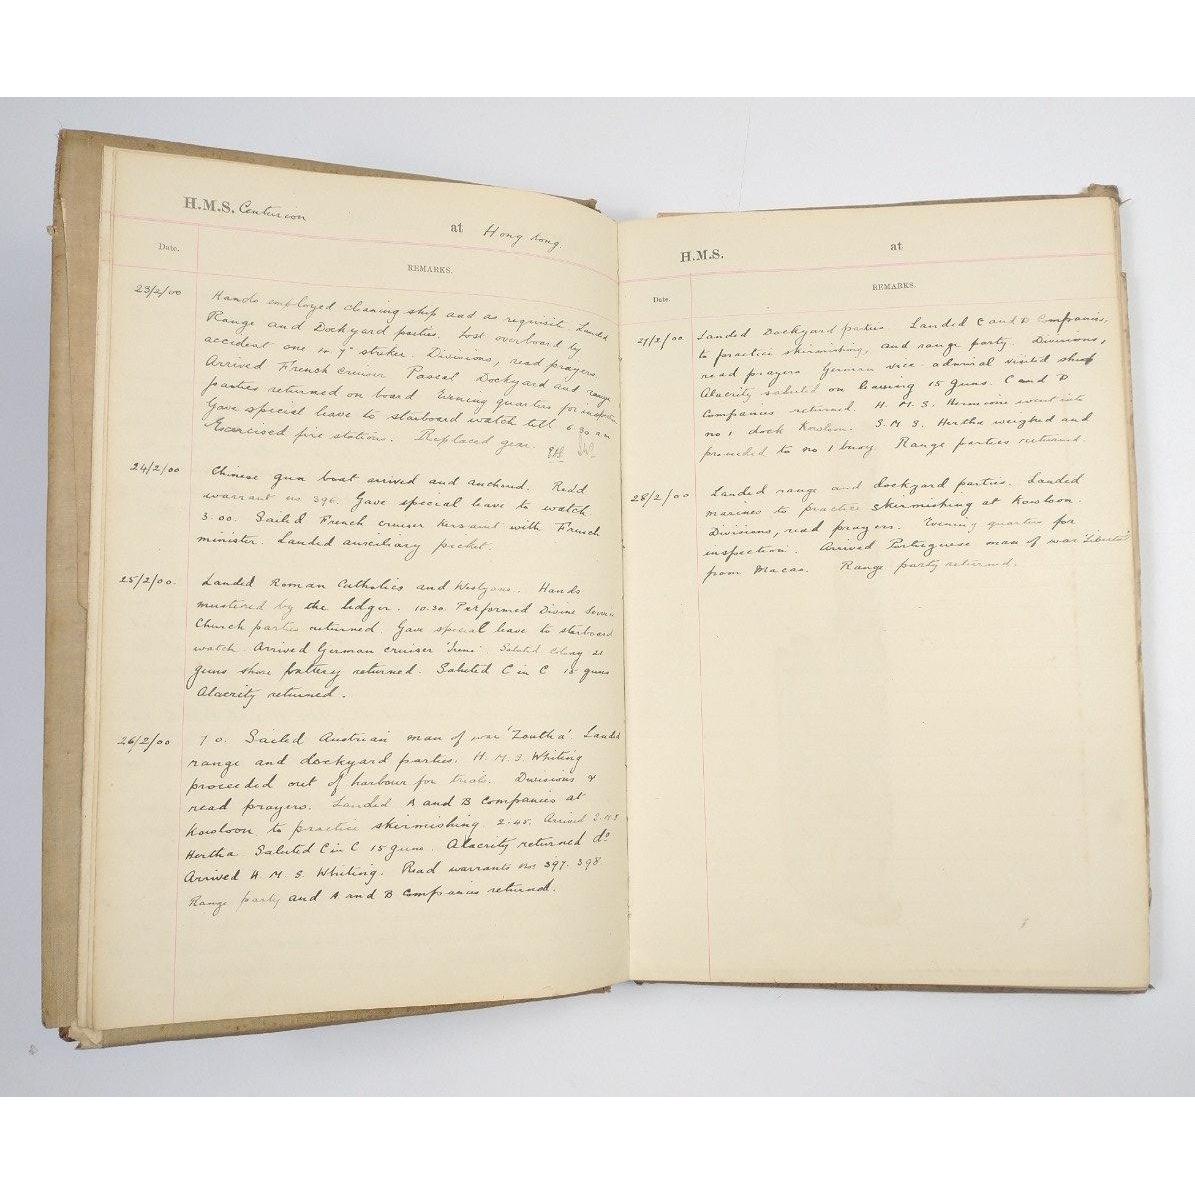 H.M.S. Centurion
at Hong Kong.
Date.
REMARKS.
23/2/00
Hands employed cleaning ship and as requisite. Landed
Range and Dockyard parties. Lost overboard by
accident one striker. Divisions, read prayers.
Arrived French cruiser Pascal Dockyard and range
parties returned on board Evening quarters for inspection
Gave special leave to starboard watch till 6.30 am
Exercised fire stations. Replaced gear.
24/2/00
Chinese gun boat arrived and anchored. Read
warrant no 396. Gave special leave to watch
3.00. Sailed French cruiser with French
minister. Landed auxiliary picket.
25/2/00
Landed Roman Catholics and Weslyans. Hands
mustered by the ledger. 10.30 Performed Divine Service
Church parties returned. Gave special leave to starboard
watch. Arrived German cruiser 'Irene' Saluted Colony 21
guns shore battery returned. Saluted C in C 15 guns
Alacrity returned.
26/2/00
7 0. Sailed Austrian man of war 'Zentha' Landed
range and dockyard parties. H.M.S Whiting
proceeded out of harbour for trials. Divisions &
read prayers. Landed A and B Companies at
Kowloon to practice skirmishing. 2.45. Arrived S.M.S
Hertha. Saluted C in C 15 guns. Alacrity returned do
Arrived H M S Whiting. Read warrants nos 397. 398
Range party and A and B Companies returned.
H.M.S.
at
Date.
REMARKS.
27/2/00
Landed Dockyard parties Landed C and D Companies,
to practice skirmishing, and range party. Divisions,
read prayers German vice admiral visited ship
Alacrity saluted on leaving 15 guns. C and D
Companies returned H.M.S. Hermione went into
no 1 dock Kowloon. S.M.S. Hertha weighed and
proceeded to no 1 buoy. Range parties returned.
28/2/00
Landed range and dockyard parties. Landed
marines to practice skirmishing at Kowloon.
Divisions, read prayers. Evening quarters for
inspection. Arrived Portuguese man of war
from Macao. Range party returned.